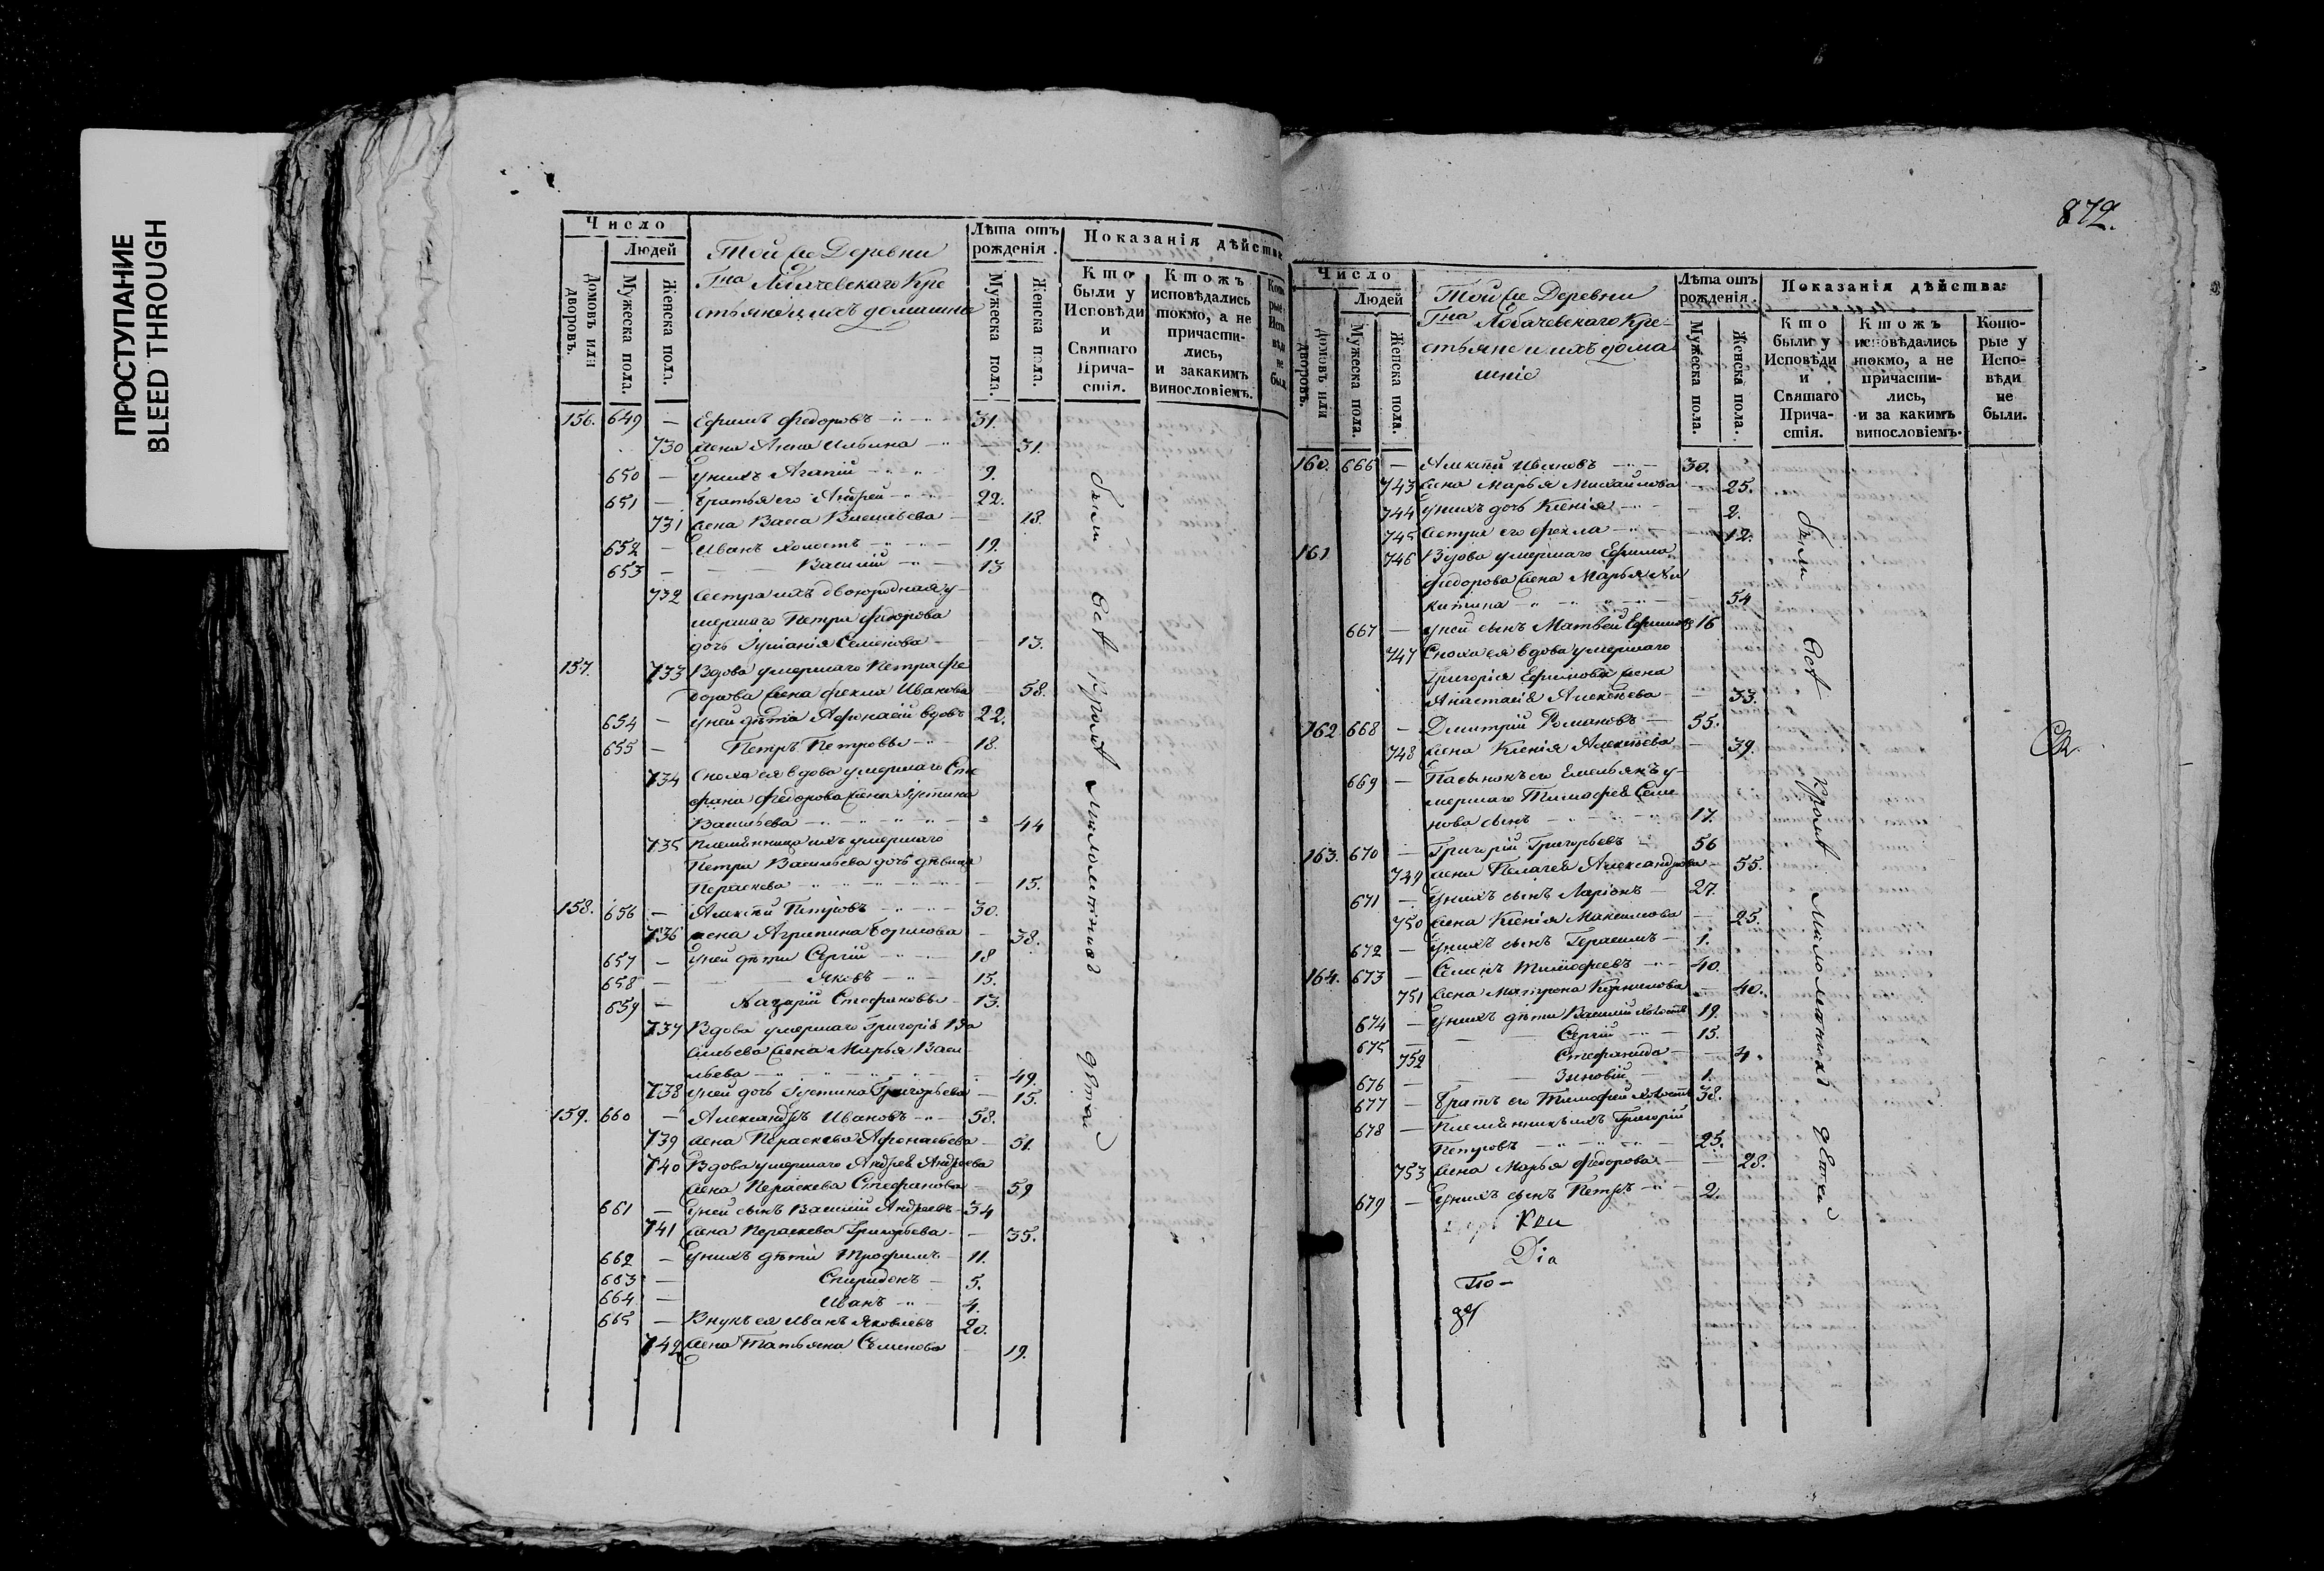 ПРОСТУПАНИЕ
BLEED THROUGH
Число
Людей
Домовъ или дворовъ.
Мужеска пола.
Женска пола.
Той же Деревни
Гна Лобачевскаго Кре
стьяне и ихъ домашние
Лѣта отъ рожденія.
Мужеска пола.
Женска пола.
Показанія дѣйства
Кто были у Исповѣди и Святаго Причастія.
Ктожъ исповѣдались токмо, а не причастились, и закакимъ винословіемъ.
156. 649 — Ефимъ Федоровъ 31.
730 жена Анна Ильина — 31.
650 — у нихъ Агапій 9.
651 — братья его Андрей 22.
731 жена Васильева — 18.
652 — Иванъ холостъ 19.
653 — Василій 13
732 сестра ихъ двоюродная у
мершаго Петра Федорова
дочь Семенова — 13.
157. 733 Вдова умершаго Петра Фе
дорова жена Фекла Иванова — 58.
654 — у ней дѣти Афонасій вдовъ 22.
655 — Петръ Петровы 18.
734 Сноха ея вдова умершаго Сте
фана Федорова жена Устина
Васильева — 44
735 Племянница ихъ умершаго
Петра Васильева дочь дѣвица
Пераскева — 15.
158. 656 — Алексѣй Петровъ 30.
736 жена Агрипина Борисова — 38.
657 — у ней дѣти Сергій 18
658 — Яковъ 15.
659 — Лазарій Стефановы 13.
737 Вдова умершаго Григорія Ва
сильева жена Марья Васи
льева — 49.
738 у ней дочь Устина Григорьева — 15.
159. 660 — Александръ Ивановъ 58.
739 жена Пераскева Афонасьева — 51.
740 Вдова умершаго Андрея Андреева
жена Пераскева Стефанова 59
661 — у ней сынъ Василій Андреевъ 34
741 жена Пераскева Григорьева — 35.
662 — у нихъ дѣти Трофимъ 11.
663 — Спиридонъ 5.
664 — Иванъ 4.
665 — Внукъ ея Иванъ Яковлевъ 20.
742 жена Татьяна Семенова 19.
были всѣ кромѣ малолѣтнихъ дѣтей
872.
Число
Людей
Домовъ или дворовъ.
Мужеска пола.
Женска пола.
Той же Деревни
Гна Лобачевскаго Кре-
стьяне и ихъ дома
шніе
Лѣта отъ рожденія.
Мужеска пола.
Женска пола.
Показанія дѣйства:
Кто были у Исповѣди и Святаго Причастія.
Ктожъ исповѣдались токмо, а не причастились, и за какимъ винословіемъ.
Которые у Исповѣди не были.
160. 666 — Алексѣй Ивановъ 30.
743 жена Марья Михайлова — 25.
744 у нихъ дочь Ксенія — 2.
745 сестра его Фекла — 12.
161 746 Вдова умершаго Ефима
Федорова жена Марья Ни
китина — 54
667 — у ней сынъ Матвей Ефимовъ 16
747 Сноха ея вдова умершаго
Григорія Ефимова жена
Анастасія Алексѣева — 33.
162 668 — Дмитрій Романовъ 55.
748 жена Ксенія Алексѣева — 39.
669 — Пасынокъ его Емельянъ у-
мершаго Тимофея Семе
нова сынъ 17.
163. 670 — Григорій Григорьевъ 56
749 жена Пелагея Александрова 55.
671 — у нихъ сынъ Ларіонъ 27.
750 жена Ксенія Максимова — 25.
672 — у нихъ сынъ Герасимъ 1.
164. 673 — Семенъ Тимофеевъ 40.
751 жена Матрена Корнилова — 40.
674 — у нихъ дѣти Василій холостъ 19.
675 — Сергій 15.
752 Стефанида — 4.
676 — Зиновій 1.
677 — братъ его Тимофей холостъ 38.
678 — Племянникъ ихъ Григорій
Петровъ 25.
753 жена Марья Федорова — 28.
679 — у нихъ сынъ Петръ 2.
Діа
По-
были всѣ кромѣ малолѣтнихъ дѣтей